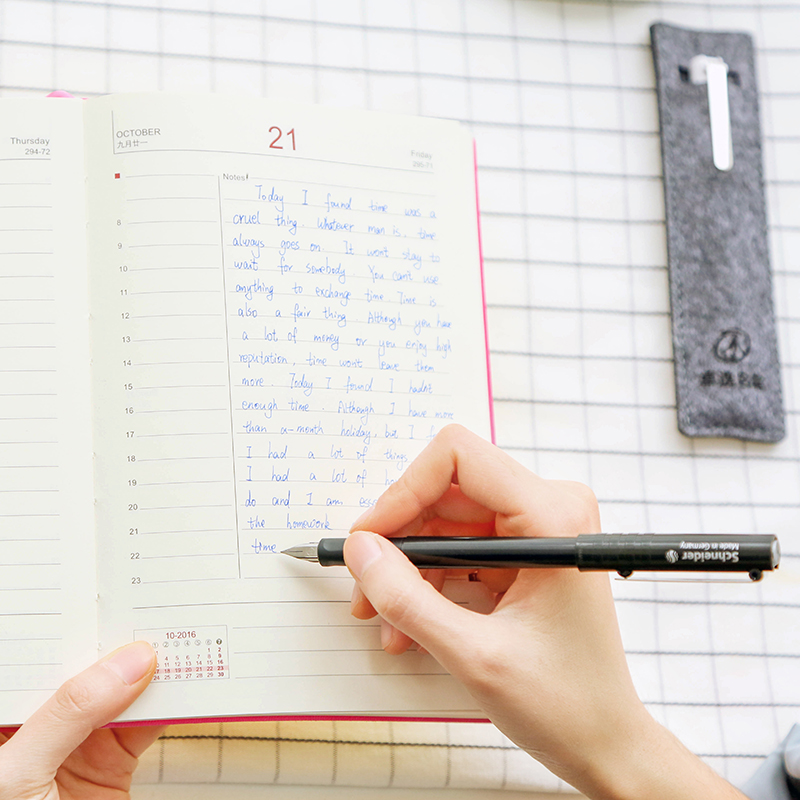 Thursday
294-72
OCTOBER
九月廿一
21
Friday
295-71
Notes
Today I found time was a
cruel thing. Whatever man is, time
always goes on. It won't stay to
wait for somebody. You can't use
anything to exchange time. Time is
also a fair thing. Although you have
a lot of money or you enjoy high
reputation, time won't leave them
more. Today I found I hadn't
enough time. Although I have more
than a-month holiday, but I
I had a lot of things
I had a lot of
do and I am
the homework
time
8
9
10
11
12
13
14
15
16
17
18
19
20
21
22
23
10-2016
Schneider
Made in Germany